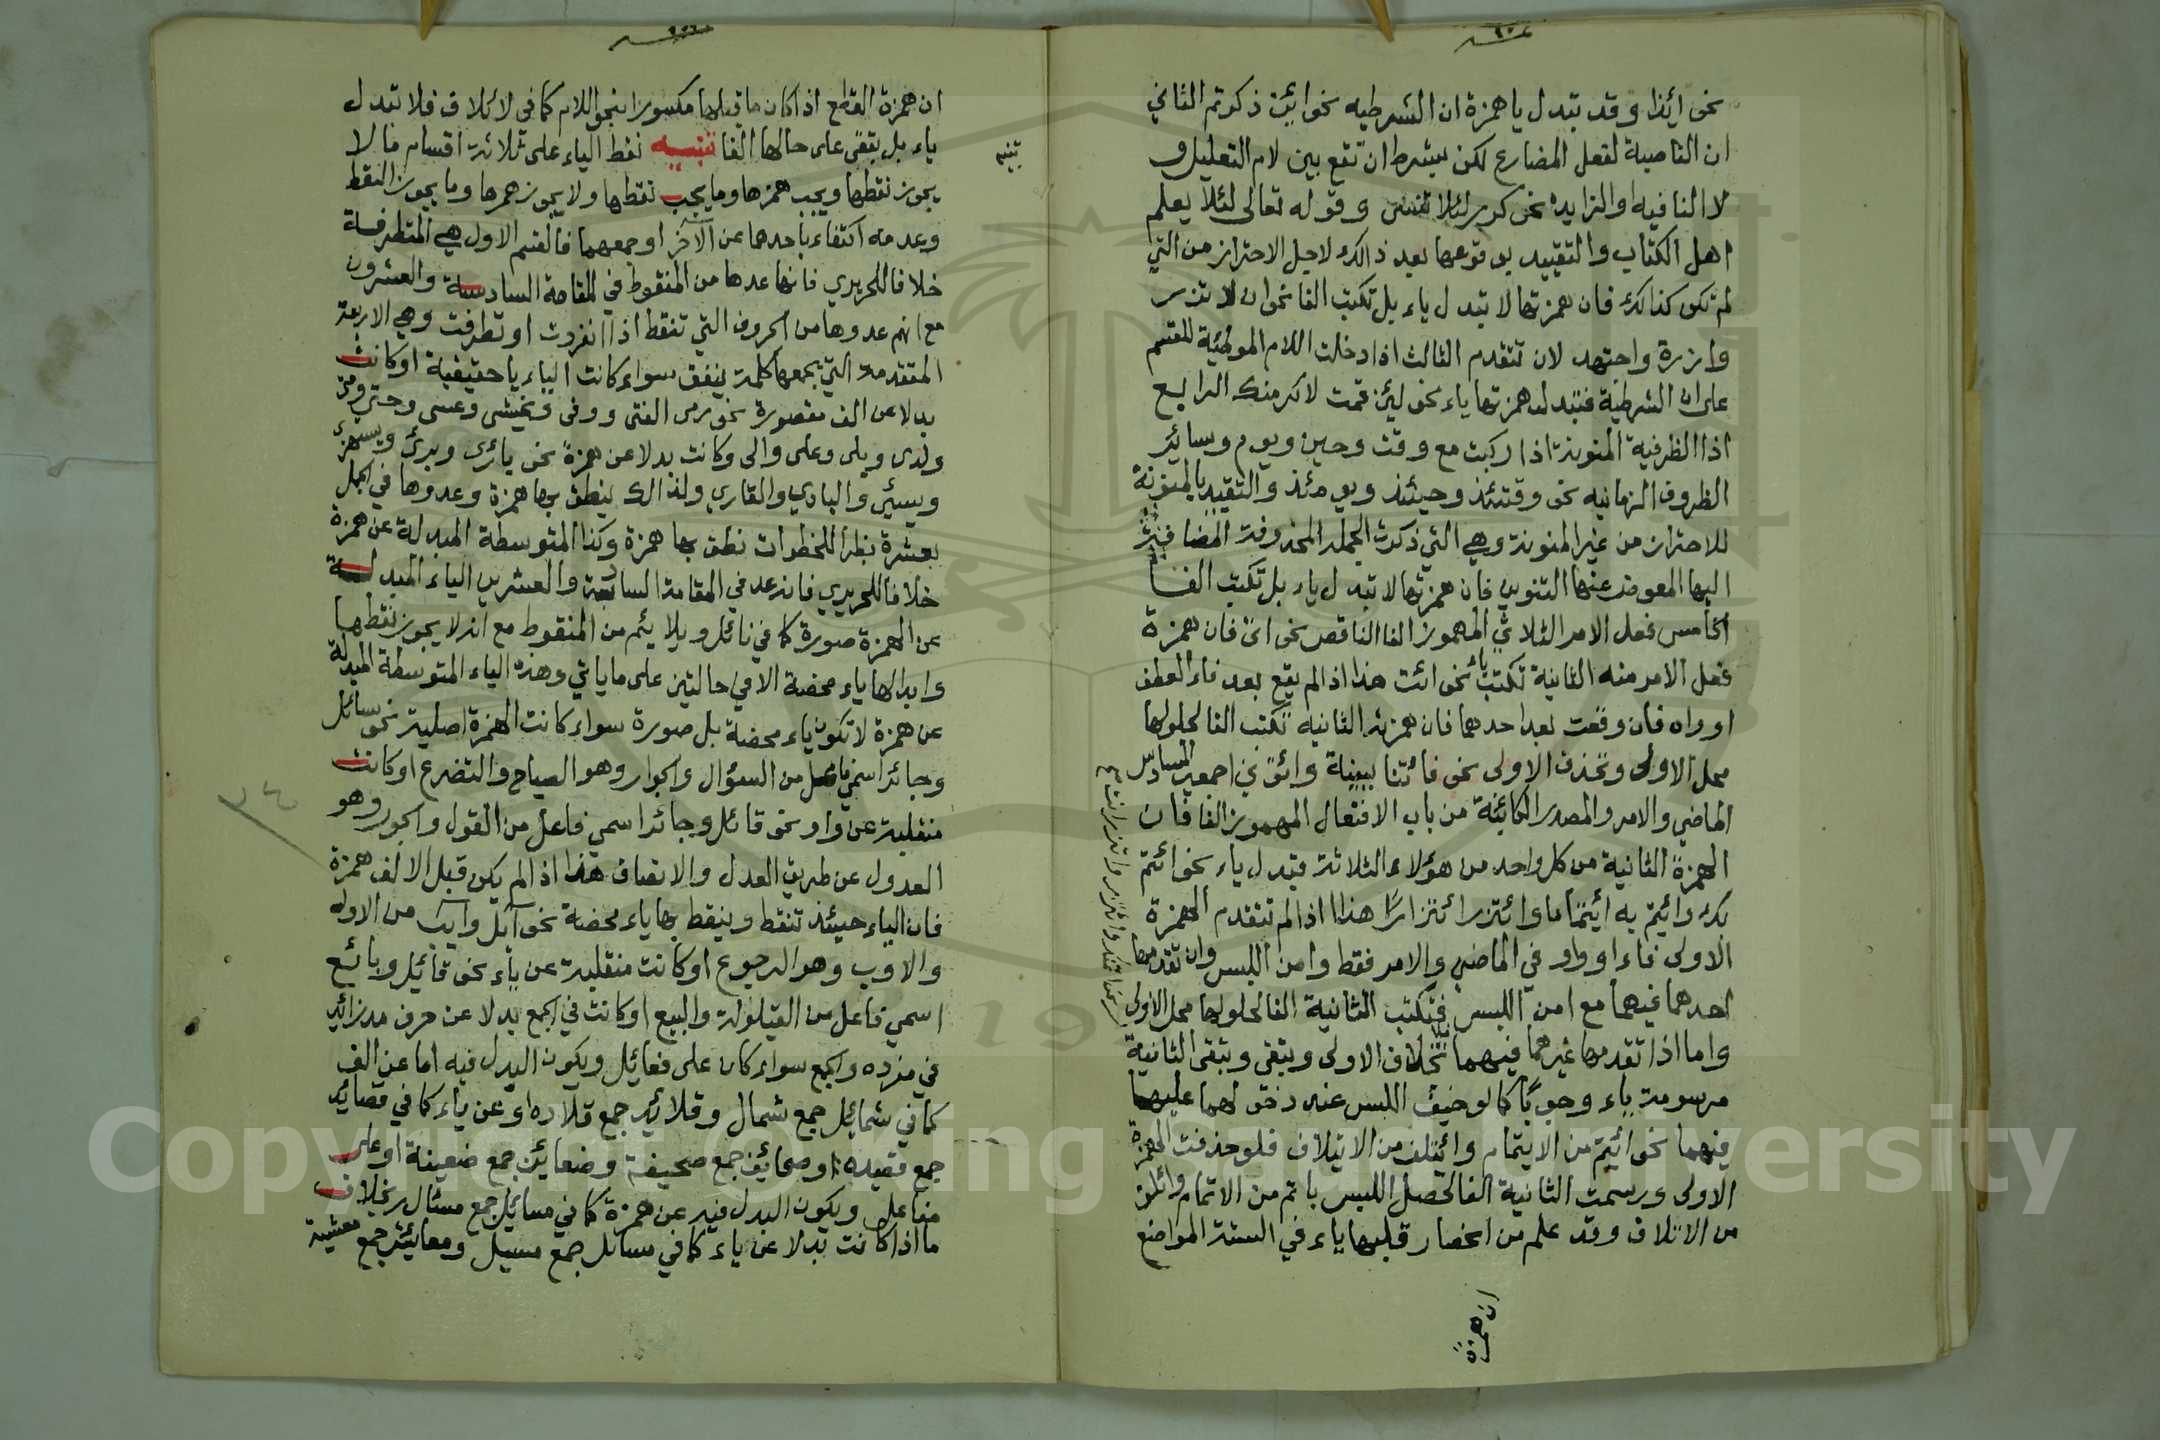 نحو ائذا وقد تبدل يا همزة ان الشرطيه نحو ائن ذكرتم الثاني
ان الناصبة لفعل المضارع لكن بشرط ان تقع بين لام التعليل و
لا النافيه او الزايده نحو كرر لئلا تنسى وقوله تعالى لئلا يعلم
اهل الكتاب والتقييد بوقوعها بعد ذالك لاجل الاحتراز من التي
لم تكن كذالك فان همزتها لا تبدل ياء بل تكتب الفا نحو ان لا تزر
وازرة واجتهد لان تتقدم الثالث اذا دخلت اللام الموطئة للقسم
على ان الشرطية فتبدل همزتها ياء نحو لئن قمت لاكرمنك الرابع
اذا الظرفية المنونة اذا ركبت مع وقت وحين ويوم وساير
الظروف الزمانيه نحو وقتئذ وحينئذ ويومئذ والتقييد بالمنونة
للاحتراز من غير المنونة وهي التي ذكرت الجمله المحذوفة المضافة
اليها المعوض عنها التنوين فان همزتها لا تبدل ياء بل تكتب الفا
الخامس فعل الامر الثلاثي المهموز الفا الناقص نحو ائت فان همزة
فعل الامر منه الثانية تكتب ياء نحو ائت هذا اذا لم يقع بعد فاء العطف
او واه فان وقعت بعد احدهما فان همزته الثانيه تكتب الفا لحلولها
محل الاولى وتحذف الاولى نحو فأتنا ببينة وأتوني اجمعين السادس
الماضي والامر والمصدر الكائنة من باب الافتعال المهموز الفا فان
الهمزة الثانية من كل واحد من هؤلاء الثلاثة تبدل ياء نحو ائتم
بك وائتم به ائتماما وائتزر ائتزارًا هذا اذا لم تتقدم الهمزة
الاولى فاء او واو في الماضي والامر فقط وامن اللبس وان تقدمها
احدهما فيهما مع امن اللبس فتكتب الثانية الفا لحلولها محل الاولى
واما اذا تقدمها غيرهما فيهما بخلاف الاولى وتبقى وتبقى الثانية
مرسومة ياء وجوبًا كما لو خيف اللبس عند دخولهما عليهما
فيهما نحو ائتم من الايتمام وائتلف من الايتلاف فلو حذفت الهمزة
الاولى ورسمت الثانية الفا لحصل اللبس باتم من الاتمام واتلف
من الاتلاف وقد علم من انحصار قلبها ياء في الستة المواضع
ان همزة
ان همزة القطع اذا كان ما قبلها مكسورا بنحو اللام كما في لائلاف فلا تبدل
ياء بل تبقى على حالها الفا تنبيه نقط الياء على ثلاثة اقسام ما لا
تنبيه
يجوز نقطها ويجب همزها وما يجب نقطها ولا يجوز همزها وما يجوز النقط
وعدمه اكتفاء باحدهما عن الآخر او جمعهما فالقسم الاول هي المتطرفة
خلافا للحريري فانه عدها من المنقوط في المقامة السادسة والعشرون
مع انهم عدوها من الحروف التي تنقط اذا انفردت او تطرفت وهي الاربعة
المتقدمة التي يجمعها كلمة ينفق سواء كانت الياء يا حقيقية او كانت
بدلا عن الف مقصورة نحو رمى الفتى ووفى ويخشى وعسى وحتى ومتى
ولدى وبلى وعلى والى وكانت بدلا عن همزة نحو يائرى وبرئ ويستهزئ
ويسيئ والبادي والقاري ولذالك ينطق بها همزة وعدوها في الجمل
بعشرة نظرا للخط وان نطق بها همزة وكذا المتوسطة المبدلة عن همزة
خلافا للحريري فانه عد في المقامة السابعة والعشرين الياء المبدلة
عن الهمزة صورة كما في نائل ويلايئم من المنقوط مع انه لا يجوز نقطها
وابدالها ياء محضة الا في حالتين على ما ياتي وهذه الياء المتوسطة المبدلة
عن همزة لا تكون ياء محضة بل صورة سواء كانت الهمزة اصلية نحو سائل
وجائر اسمي فاعل من السؤال والجوار وهو الصياح والتضرع او كانت
منقلبة عن واو نحو قائل وجائر اسمي فاعل من القول والجور وهو
العدول عن طريق العدل والانصاف هذا اذا لم يكن قبل الالف همزة
فان الياء حينئذ تنقط وينقط بها ياء محضة نحو آيل وآيب من الاول
والاوب وهو الرجوع او كانت منقلبة عن ياء نحو قائل وبائع
اسمي فاعل من القيلولة والبيع او كانت في الجمع بدلا عن حرف مد زائد
في مفرده والجمع سواء كان على فعائل ويكون البدل فيه اما عن الف
كما في شمائل جمع شمال وقلائد جمع قلاده او عن ياء كما في قصائد
جمع قصيده او صحائف جمع صحيفة وضعائن جمع ضعينة او على
مفاعل ويكون البدل فيه عن همزة كما في مسائل جمع مسئال بخلاف
ما اذا كانت بدلا عن ياء كما في مسائل جمع مسيل ومعايش جمع معيشة
٢٤
Copyright © King Saud University
19